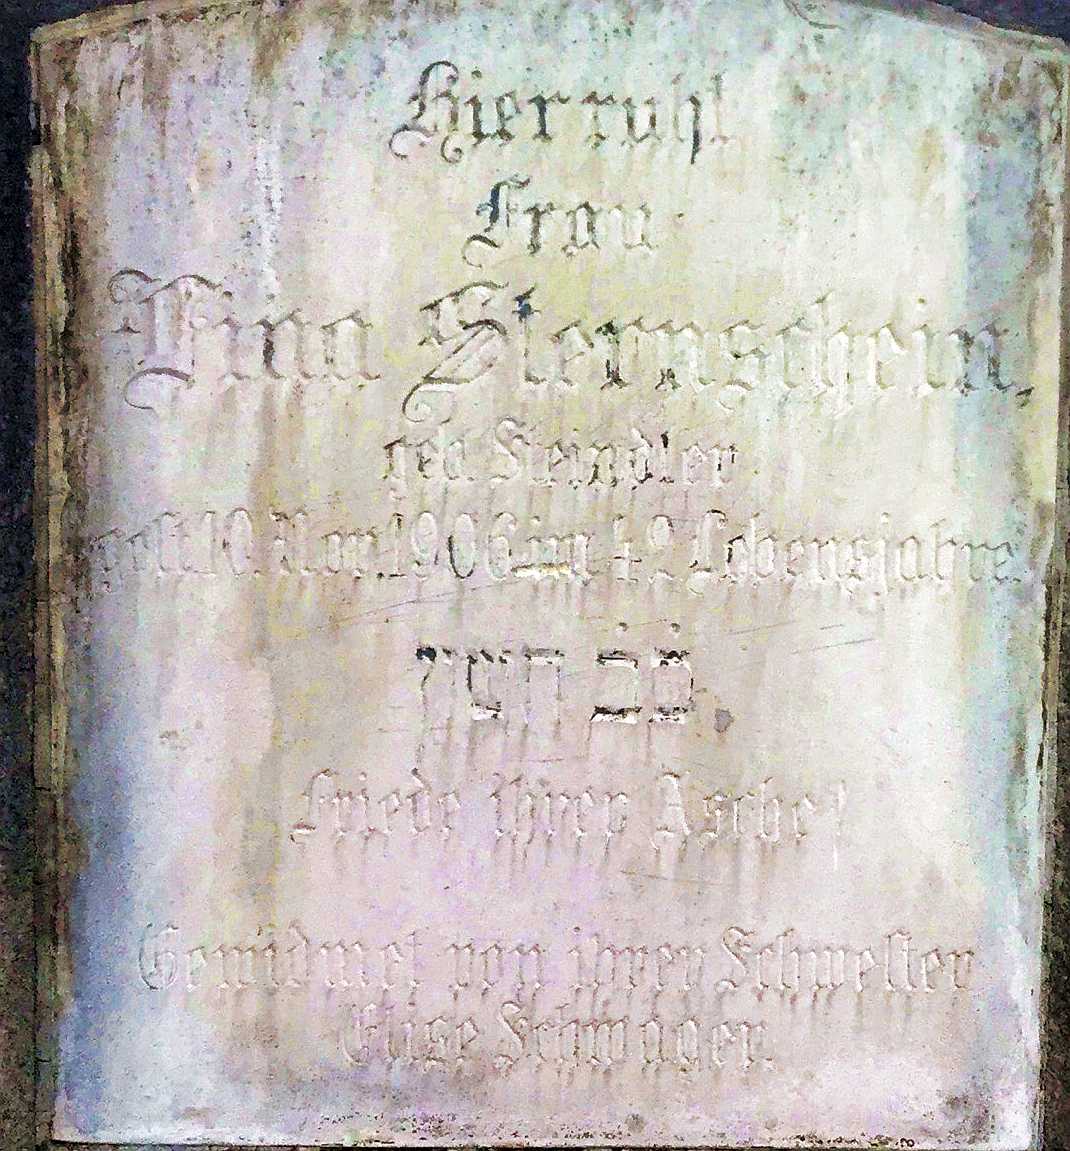 Hier ruht
Frau
Sternschein,
geb. Steindler
gest. 10. Nov. 1906 im 42. Lebensjahre.
Friede ihrer Asche!
Gewidmet von ihrer Schwester
Elise Schwager.